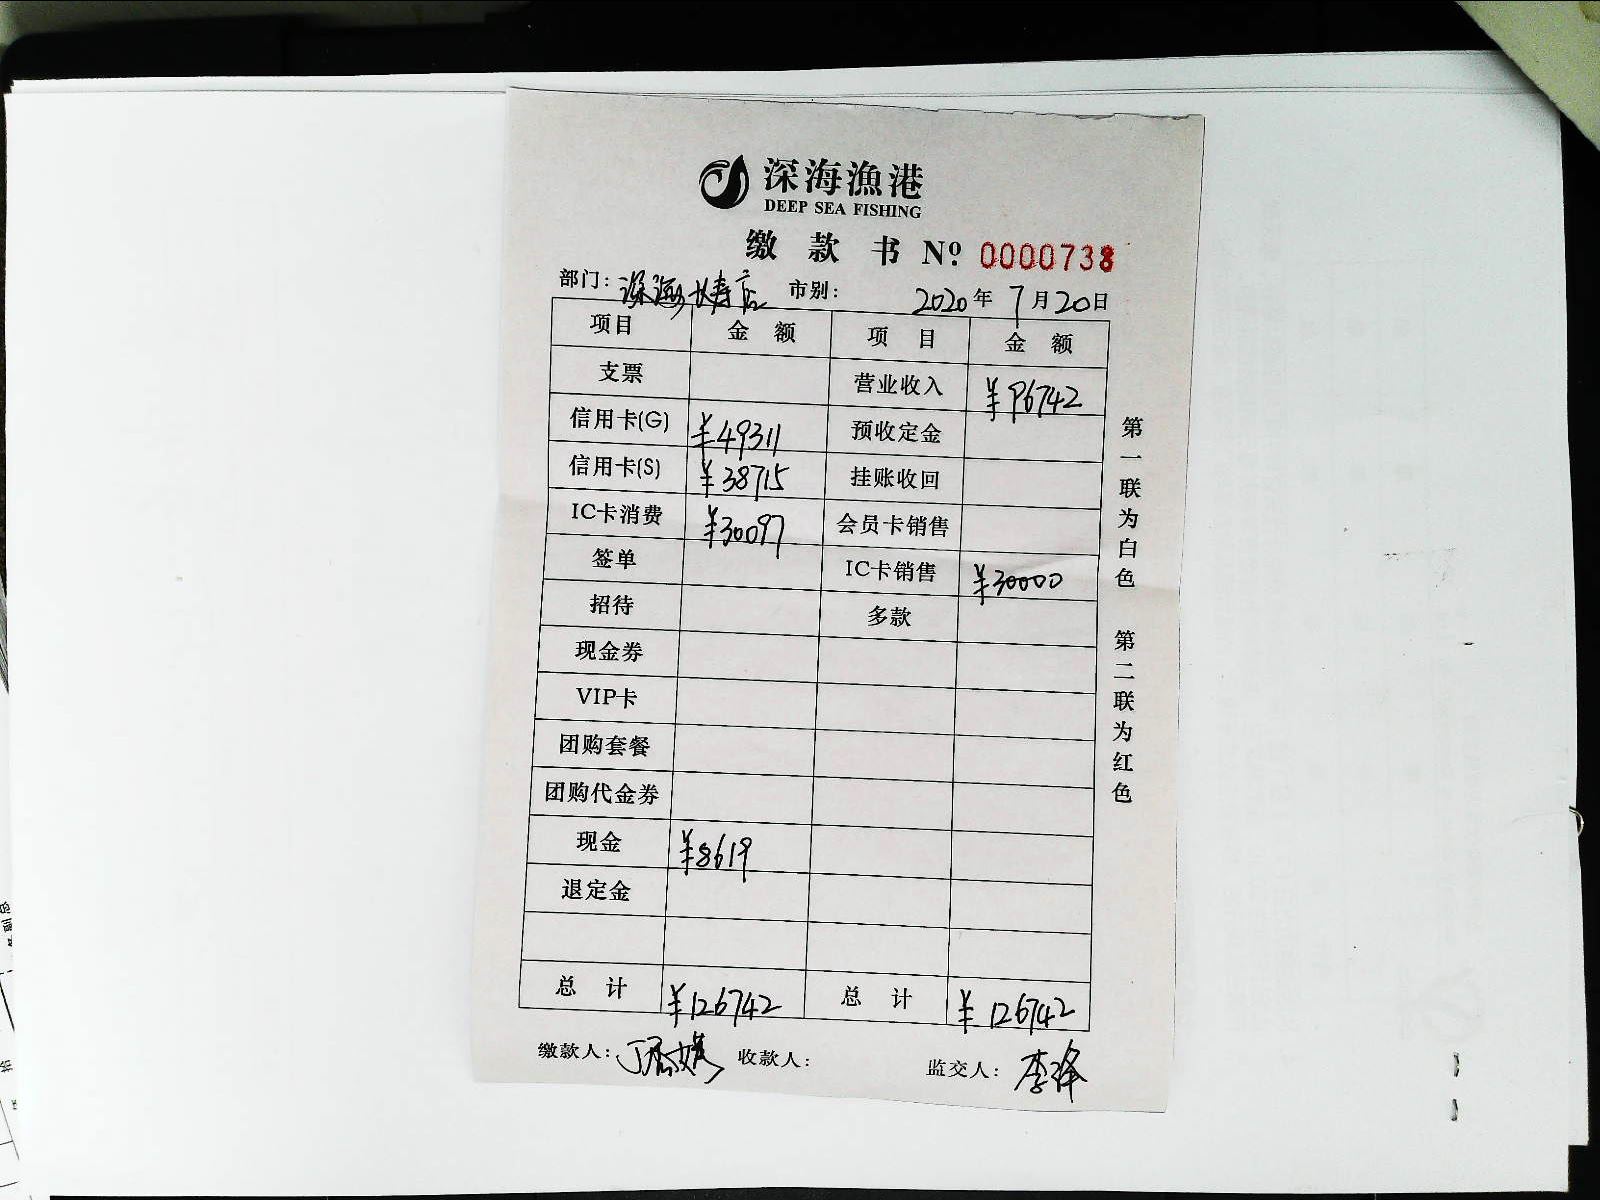 深海漁港
DEEP SEA FISHING
缴款书 Nº: 0000738
部门: 深海长寿店 市别: 2020年7月20日
项目 金额 项目 金额
支票 营业收入 ¥96742
信用卡(G) ¥49311 预收定金
信用卡(S) ¥38715 挂账收回
IC卡消费 ¥30097 会员卡销售
签单 IC卡销售 ¥30000
招待 多款
现金券
VIP卡
团购套餐
团购代金券
现金 ¥8619
退定金
总计 ¥126742 总计 ¥126742
缴款人: 收款人: 监交人: 李泽
第一联为白色 第二联为红色